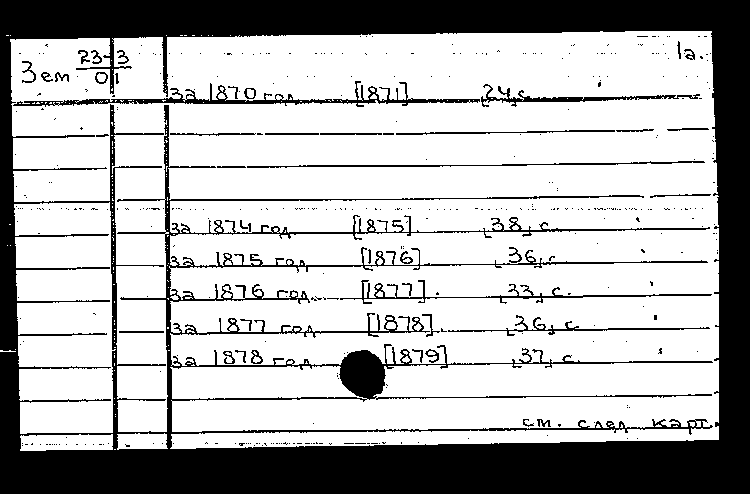 1а.
Зем 23-3
01
за 1870 год [1871] 24 с.
за 1874 год [1875]. 38 с.
за 1875 год [1876] 36 с.
за 1876 год. [1877]. 33 с.
за 1877 год [1878]. 36 с.
за 1878 год [1879] 37 с.
см. след карт.